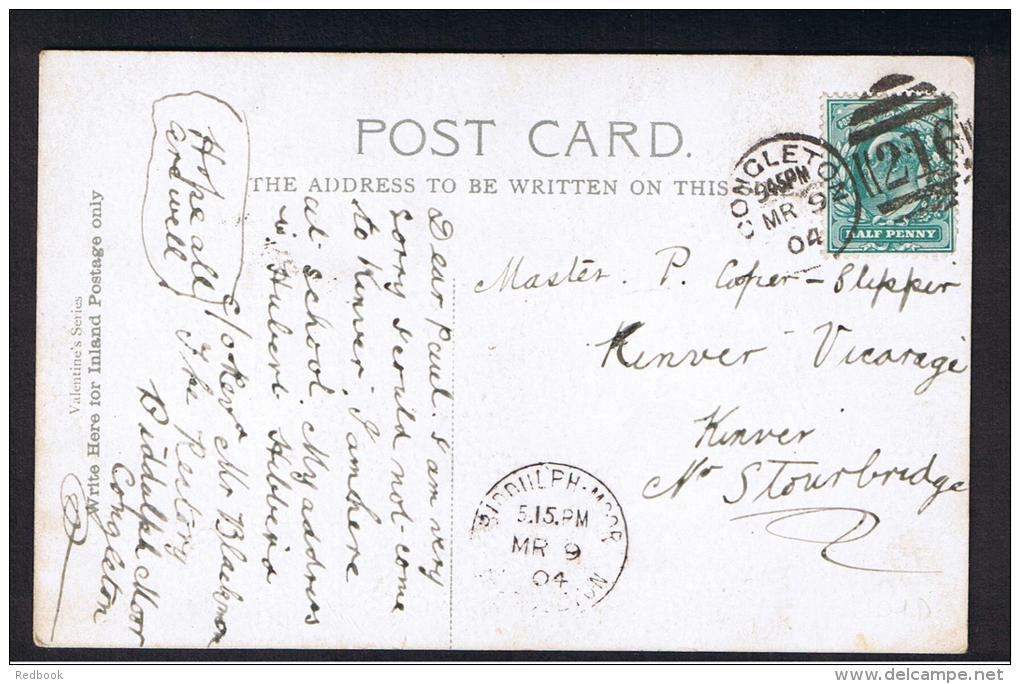 POST CARD.
THE ADDRESS TO BE WRITTEN ON THIS
CONGLETON
9.45PM
MR 9
04
216
HALF PENNY
Master. P. Coper-Slipper
Kinver Vicarage
Kinver
Nr Stourbridge
BIDDULPH-MOOR
5.15.PM
MR 9
04
Dear Paul. I am very
sorry I could not come
to Kinver I am here
at school. My address
is Hubert Hibberd
C/o Rev Mr Blackmon
The Rectory
Biddulph Moor
Congleton
Hope all
are well
Valentine's Series
Write Here for Inland Postage only
Redbook
delcampe.net